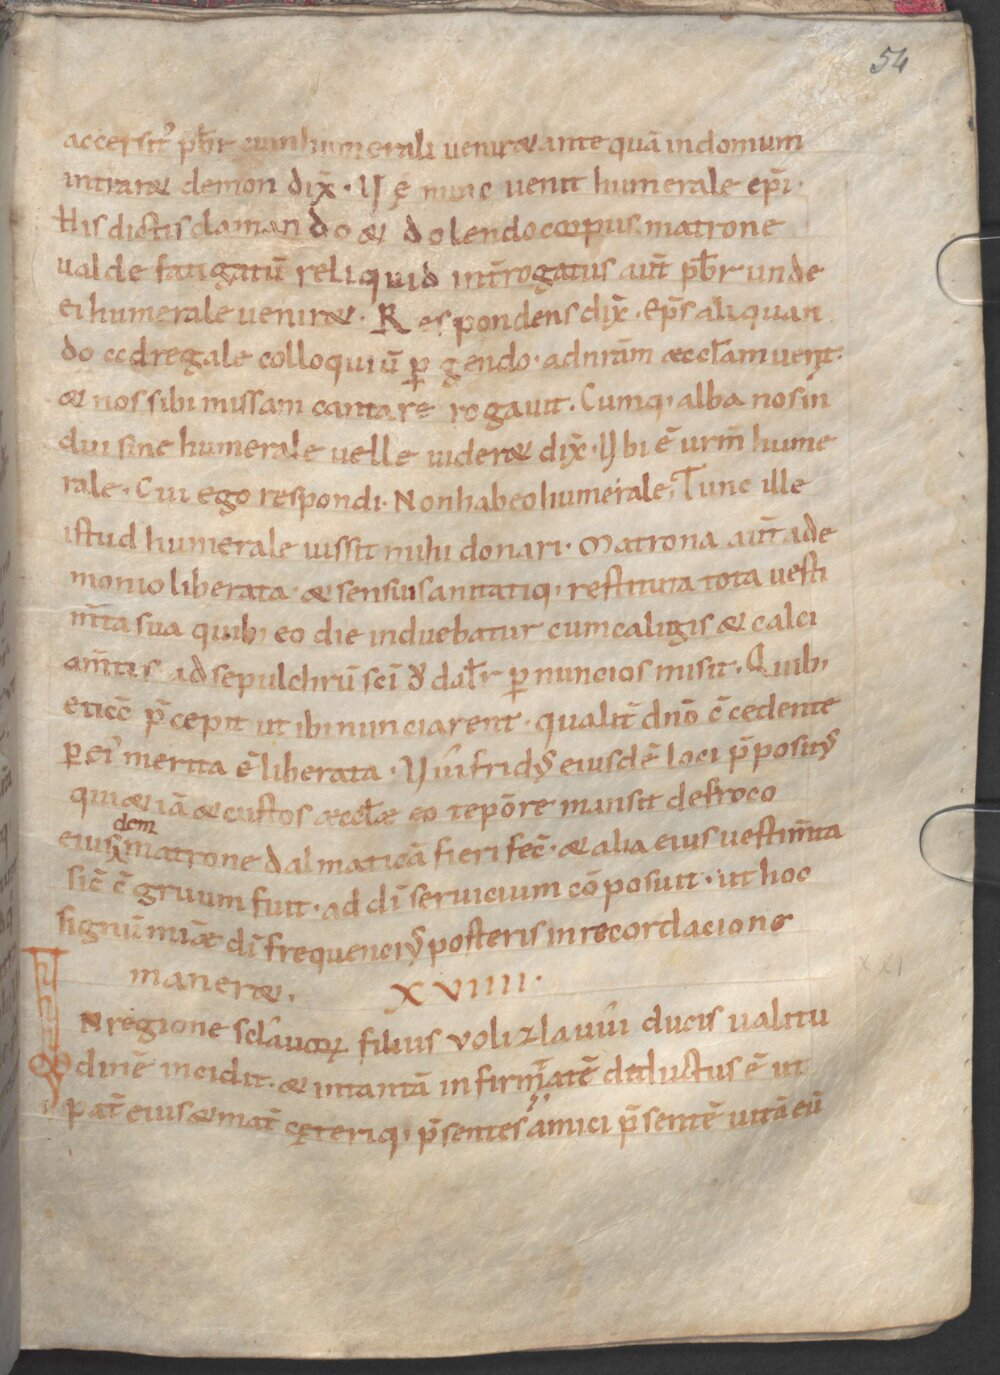 54
accersit᷒ pb̄r cum humerali uenir& ante quā in domum
intrar& demon dix̄ · Hę nunc uenit humerale ep̄i ·
His dictis clamando & dolendo corpus matrone
ualde fatigatū reliquid int̄rogatus aut̄ pb̄r unde
ei humerale uenir& · Respondens dix̄ · Ep̄s aliquan
do ad regale colloquiū ꝑgendo · ad nr̄am æccl̄am uenit ·
& nos sibi missam cantare rogauit · Cumq; alba nos in
dui sine humerale uelle uider& dix̄ · Ubi ē urm̄ hume
rale · Cui ego respondi · Non habeo humerale; Tunc ille
istud humerale iussit mihi donari · Matrona aut̄ a de
monio liberata · & sensus sanitatiq; restituta tota uesti
m̄ta sua quib; eo die induebatur cum caligis & calci
am̄tis ad sepulchrū sc̄i ỡdal̄r ꝑ nuncios misit · Quib;
etic̄ p̄cepit ut ibi nunciarent · qualit̄ dn̄o c̄cedente
ꝑ ei᷒ merita ē liberata · Uuifridꝰ eiusdē loci p̄positꝰ
qui &iā & custos æccl̄æ eo tepōre mansit de froco
eiusdem matrone dalmaticā fieri fec̄ · & alia eius uestim̄ta
sic̄ c̄gruum fuit · ad dī seruicium cōposuit · ut hoc
signū miæ dī frequenciꝰ posteris in recordacione
maner& · XVIIII ·
IN regione sclauoꝝ filius uolizlauui ducis ualitu
dinē incidit · & in tantā infirmatē deductus ē ut
pat̄ eius & mat̄ cęteriq; p̄sentes amici p̄sentē uitā eū